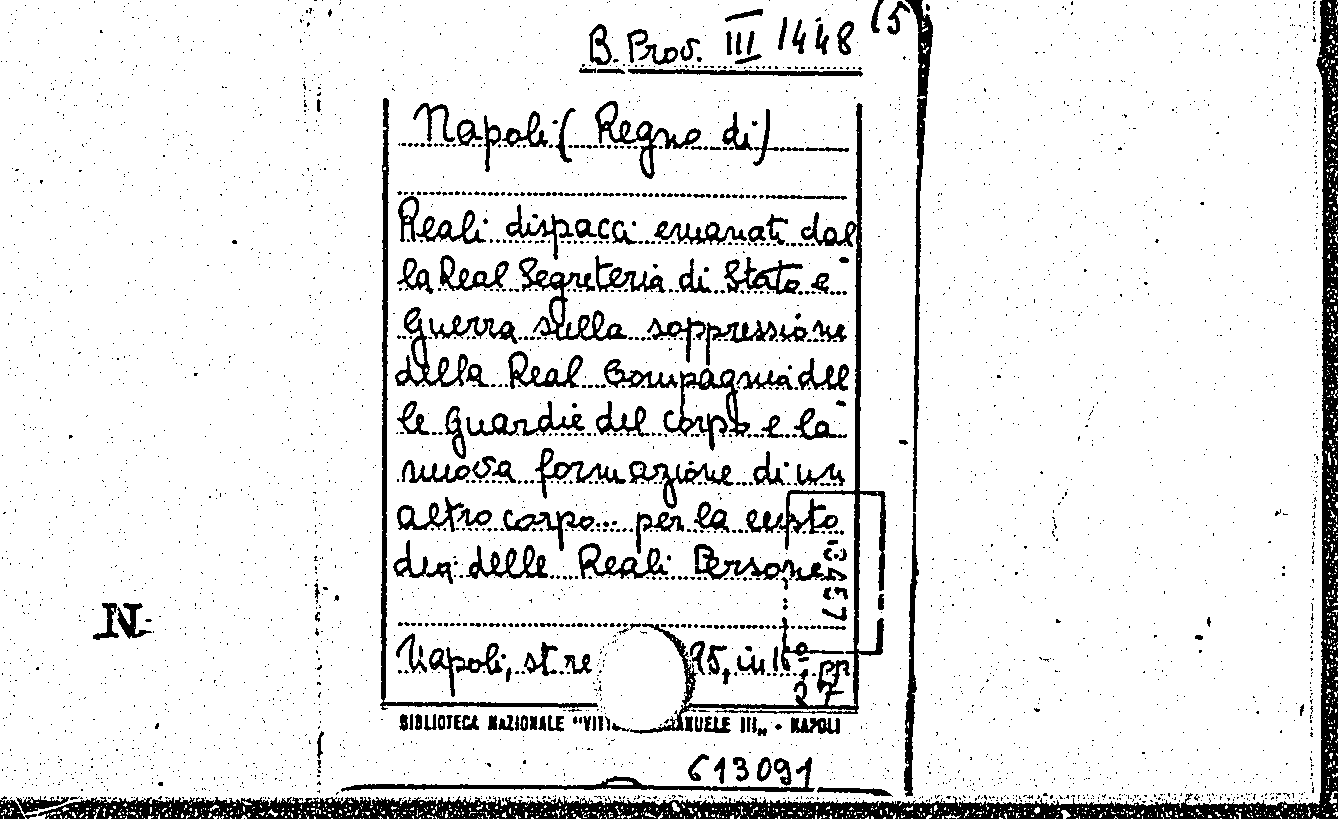 B. Prov. III 1448 (5
Napoli (Regno di)
Reali dispacci emanati dal
la Real Segreteria di Stato e
Guerra sulla soppressione
della Real Compagnia del
le Guardie del Corpo e la
nuova formazione di un
altro corpo... per la custo
dia delle Reali Persone
Napoli, st. re 95, in 16°,
pp
27
13457
BIBLIOTECA NAZIONALE "VITT ANUELE III„ - NAPOLI
613091
N